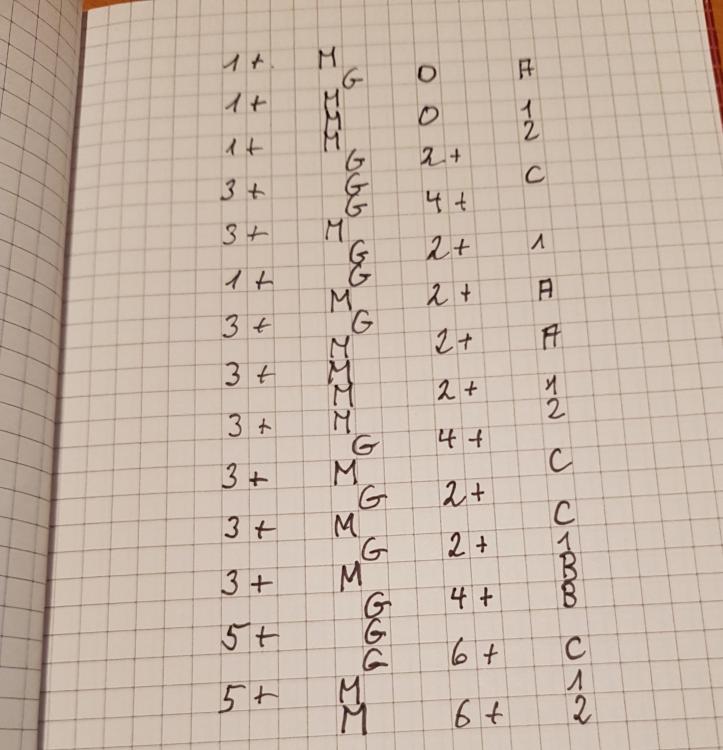 1+ M
G 0 A
1+ M
M 0 1
1+ M 2
G 2+
3+ G C
G 4+
3+ M
G 2+ 1
1+ G
M 2+ A
3+ G
M 2+ A
3+ M
M 2+ 1
3+ M 2
G 4+
3+ M C
G 2+
3+ M C
G 2+ 1
3+ M B
G 4+ B
5+ G
G 6+ C
5+ M 1
M 6+ 2